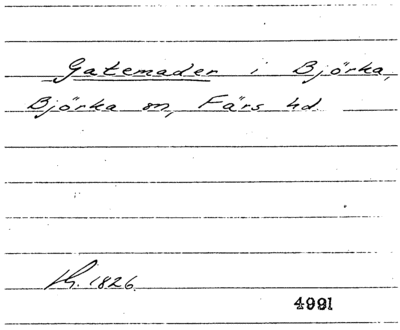 Gatemader i Björka,
Björka sn, Färs hd
Kh. 1826
4991